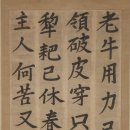 老牛用力已
領破皮穿只
犂耙已休春
主人何苦又